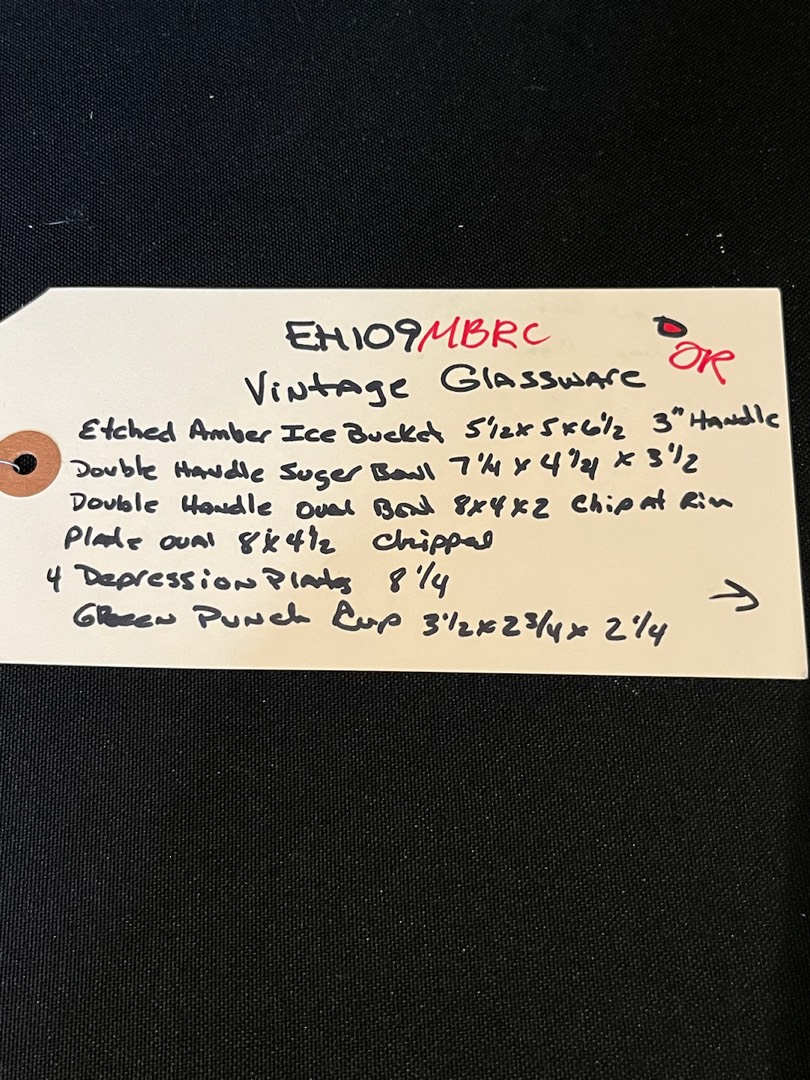 EH109MBRC D
OR
Vintage Glassware
Etched Amber Ice Bucket 5 1/2 x 5 x 6 1/2 3" Handle
Double Handle Suger Bowl 7 1/4 x 4 1/4 x 3 1/2
Double Handle oval Bowl 8x4x2 Chip at Rim
Plate oval 8x4 1/2 chipped
4 Depression Plates 8 1/4
GREEN Punch Cup 3 1/2 x 2 3/4 x 2 1/4
→